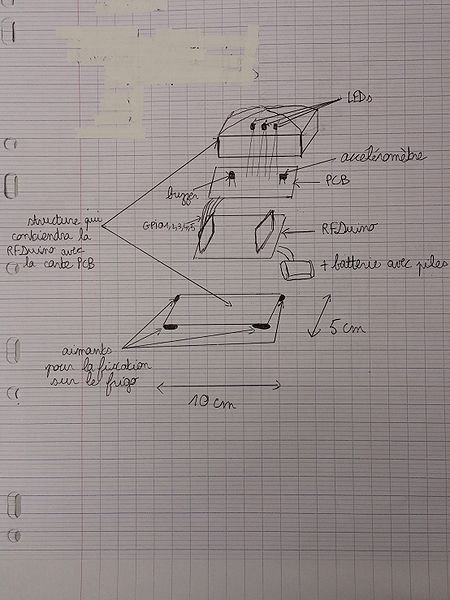 LEDs
accéléromètre
buzzer
PCB
structure qui
contiendra la
RFDuino avec
la carte PCB
GPIO1,2,3,4,5
RFDuino
+ batterie avec piles
5 cm
aimants
pour la fixation
sur le frigo
10 cm